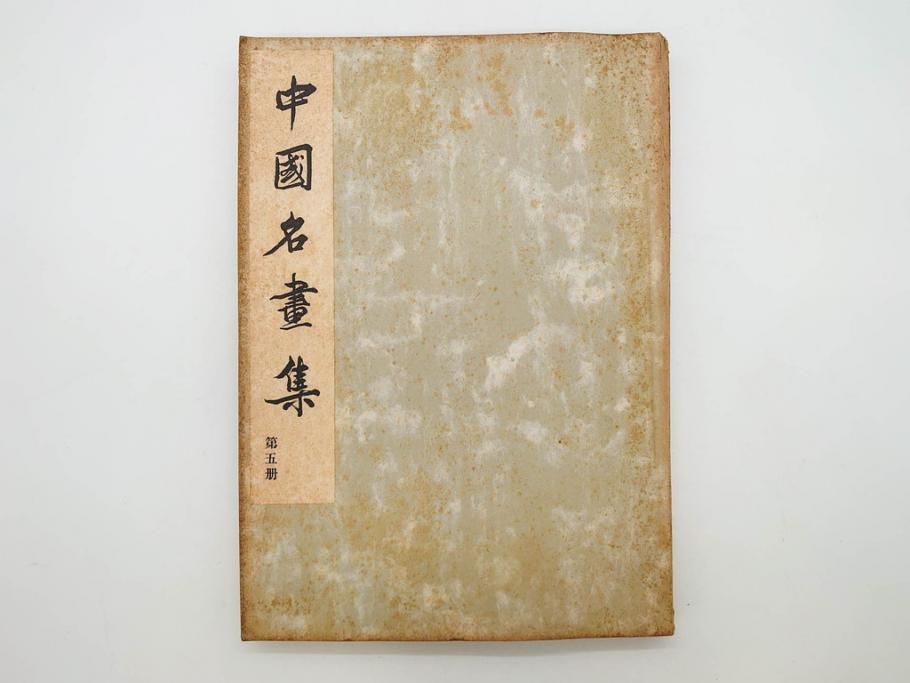 中國名畫集
第五册